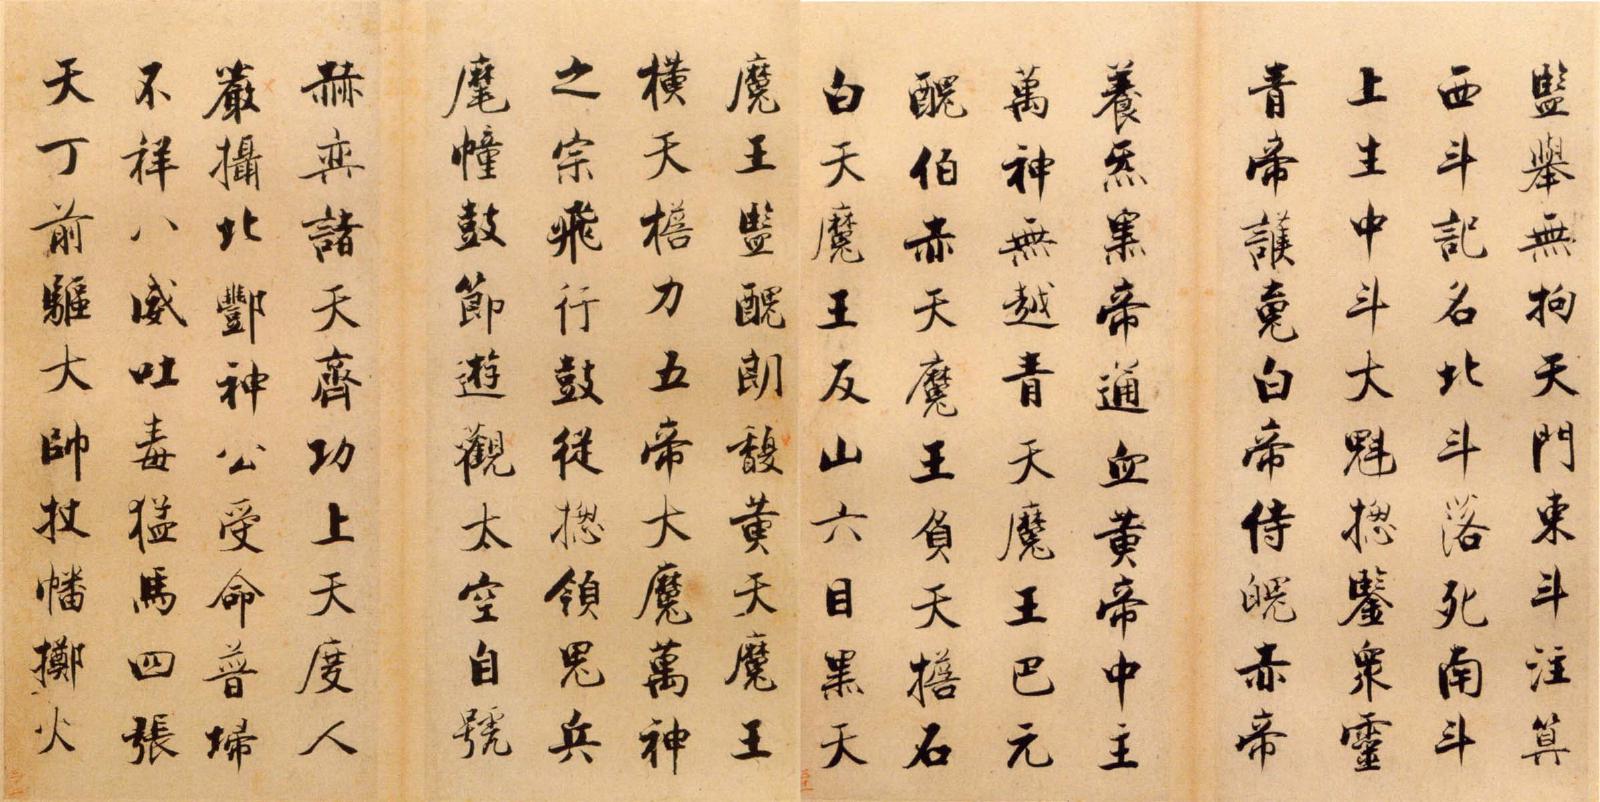 監舉無拘天門東斗注筭
西斗記名北斗落死南斗
上生中斗大魁揔鑒衆靈
青帝護䰟白帝侍魄赤帝
養炁黑帝通血黃帝中主
萬神無越青天魔王巴元
醜伯赤天魔王負天擔石
白天魔王反山六目黑天
魔王監醜朗馥黃天魔王
橫天擔力五帝大魔萬神
之宗飛行鼓從揔領鬼兵
麾幢鼓節遊觀太空自號
赫弈諸天齊功上天度人
嚴攝北酆神公受命普掃
不祥八威吐毒猛馬四張
天丁前驅大帥杖幡擲火